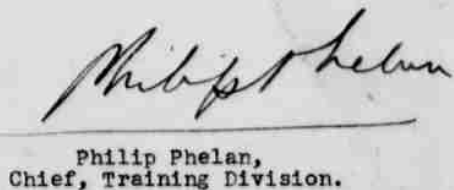 Philip Phelan
Philip Phelan,
Chief, Training Division.